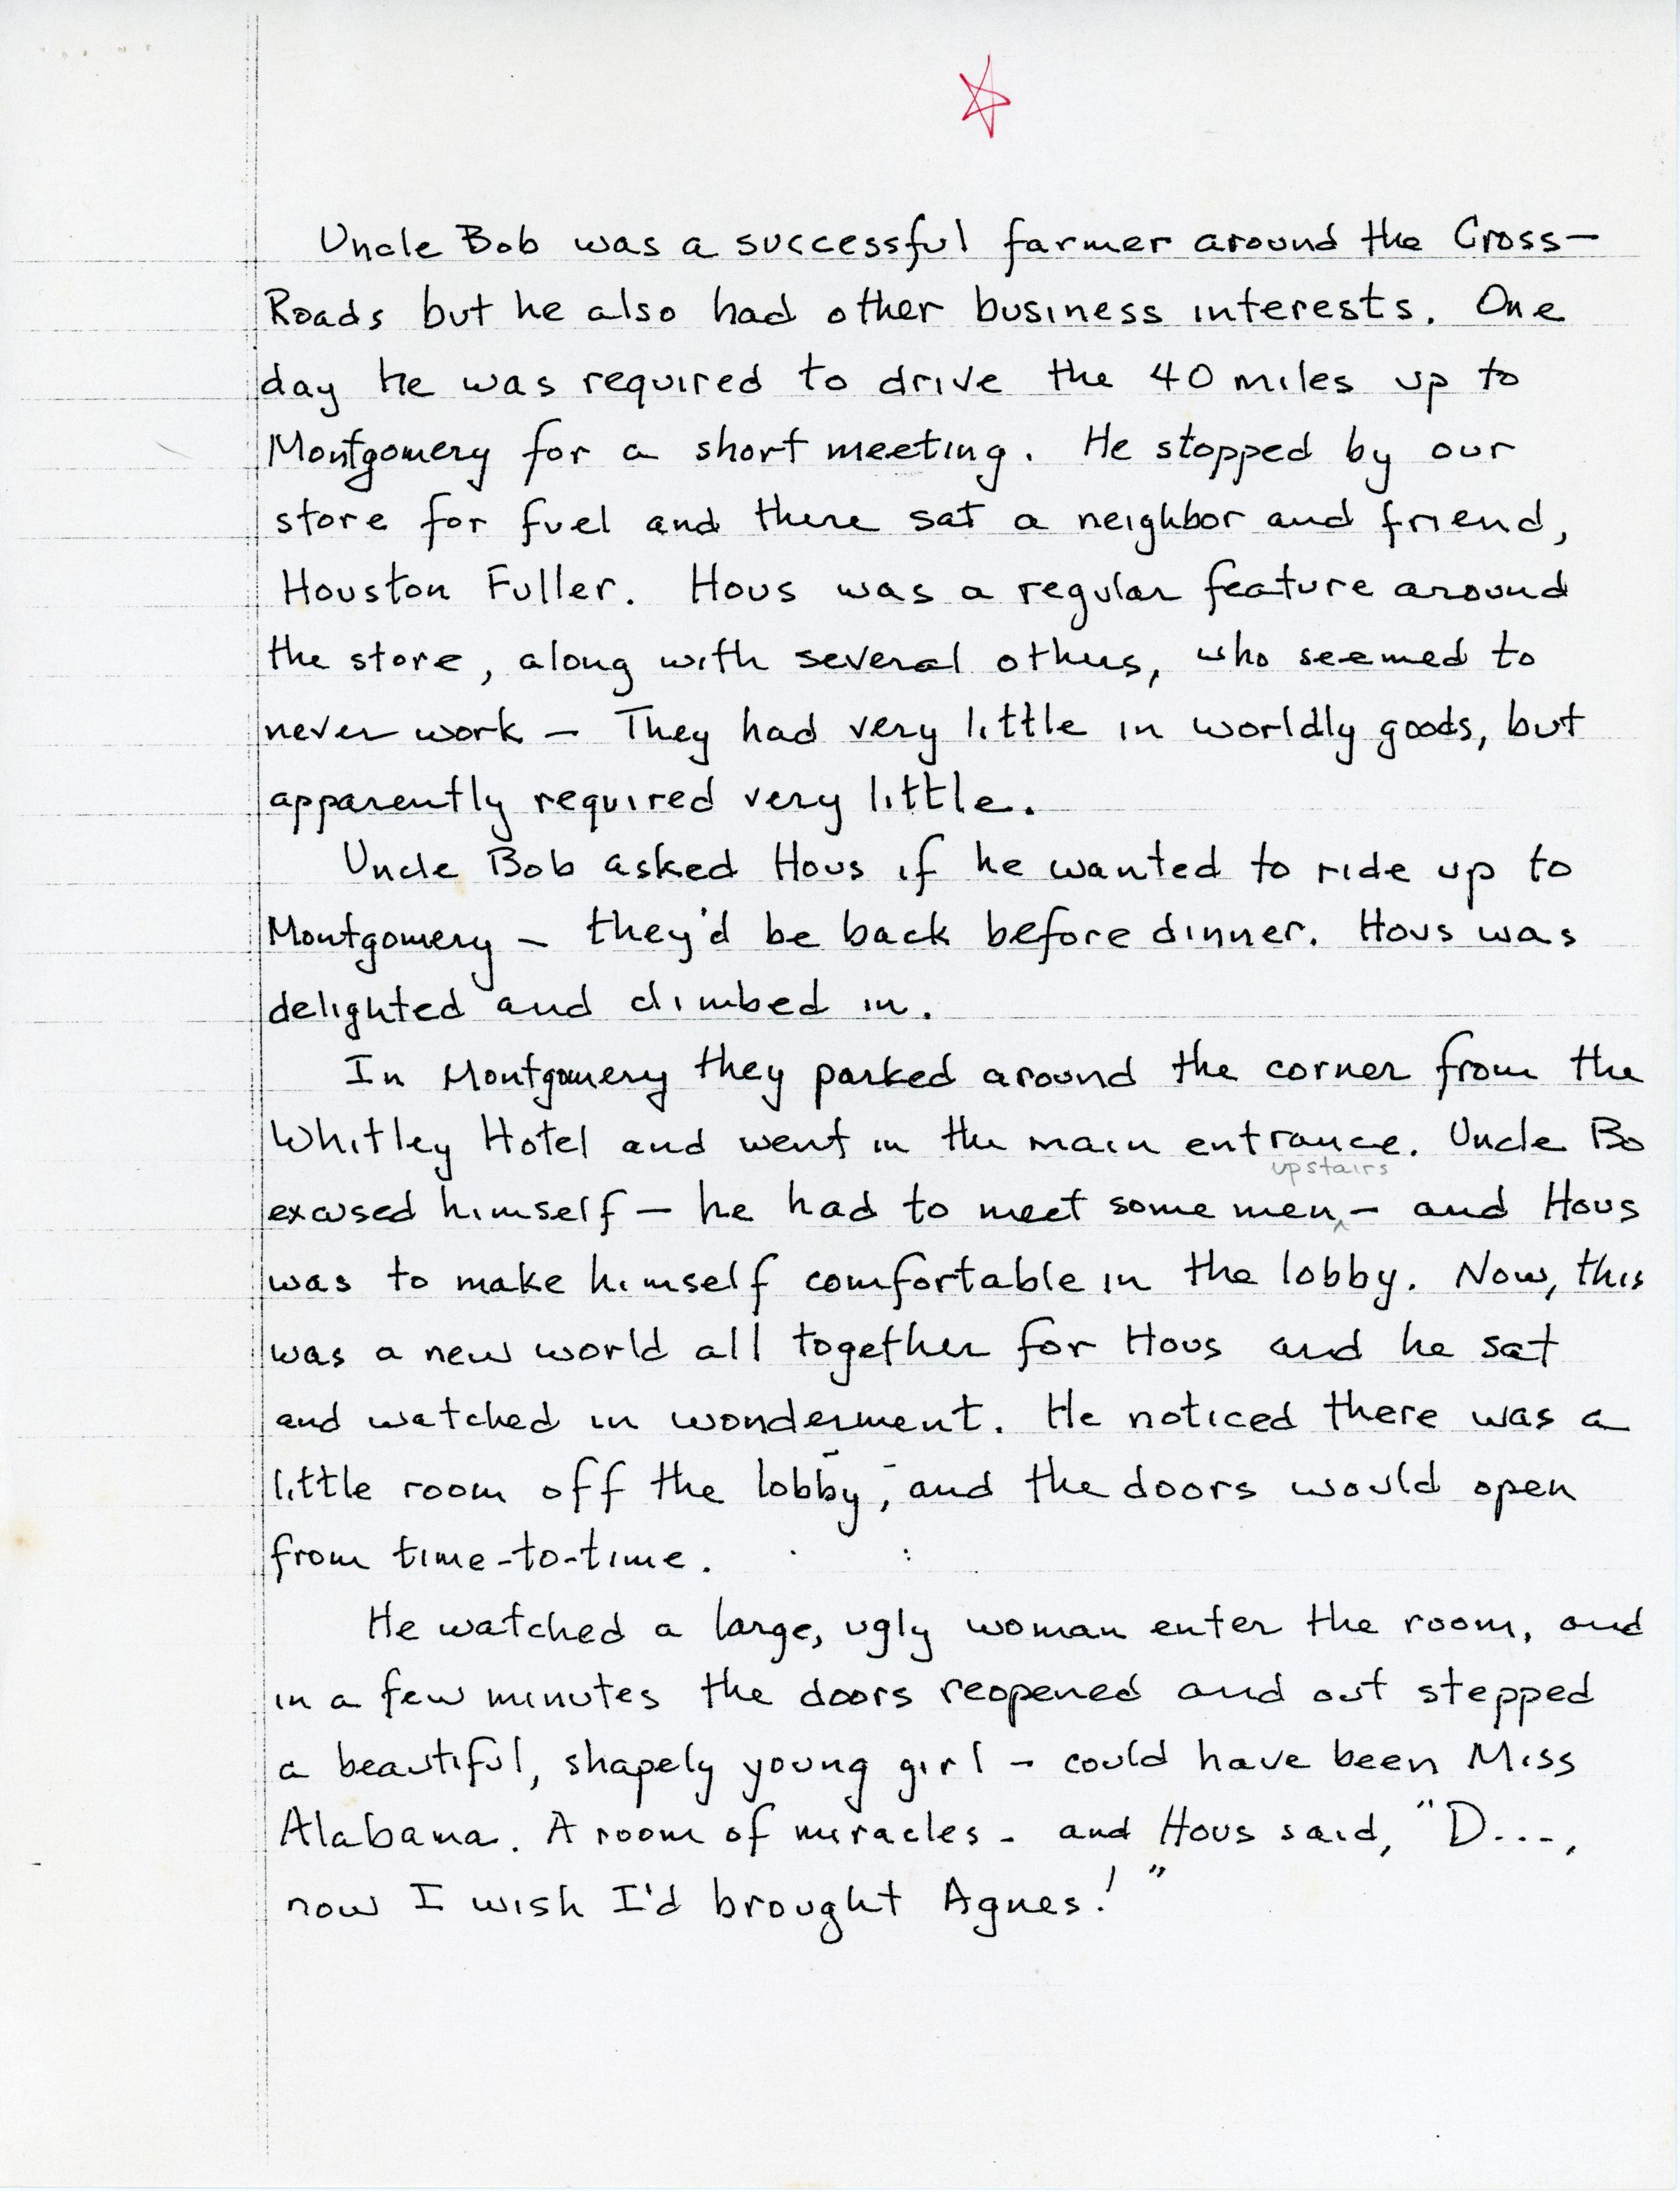 Uncle Bob was a successful farmer around the Cross-
Roads but he also had other business interests. One
day he was required to drive the 40 miles up to
Montgomery for a short meeting. He stopped by our
store for fuel and there sat a neighbor and friend,
Houston Fuller. Hous was a regular feature around
the store, along with several others, who seemed to
never work – They had very little in worldly goods, but
apparently required very little.
Uncle Bob asked Hous if he wanted to ride up to
Montgomery – they'd be back before dinner. Hous was
delighted and climbed in.
In Montgomery they parked around the corner from the
Whitley Hotel and went in the main entrance. Uncle Bo
upstairs
excused himself – he had to meet some men ^ – and Hous
was to make himself comfortable in the lobby. Now, this
was a new world all together for Hous and he sat
and watched in wonderment. He noticed there was a
little room off the lobby, and the doors would open
from time-to-time.
He watched a large, ugly woman enter the room, and
in a few minutes the doors reopened and out stepped
a beautiful, shapely young girl – could have been Miss
Alabama. A room of miracles – and Hous said, "D---,
now I wish I'd brought Agnes!"